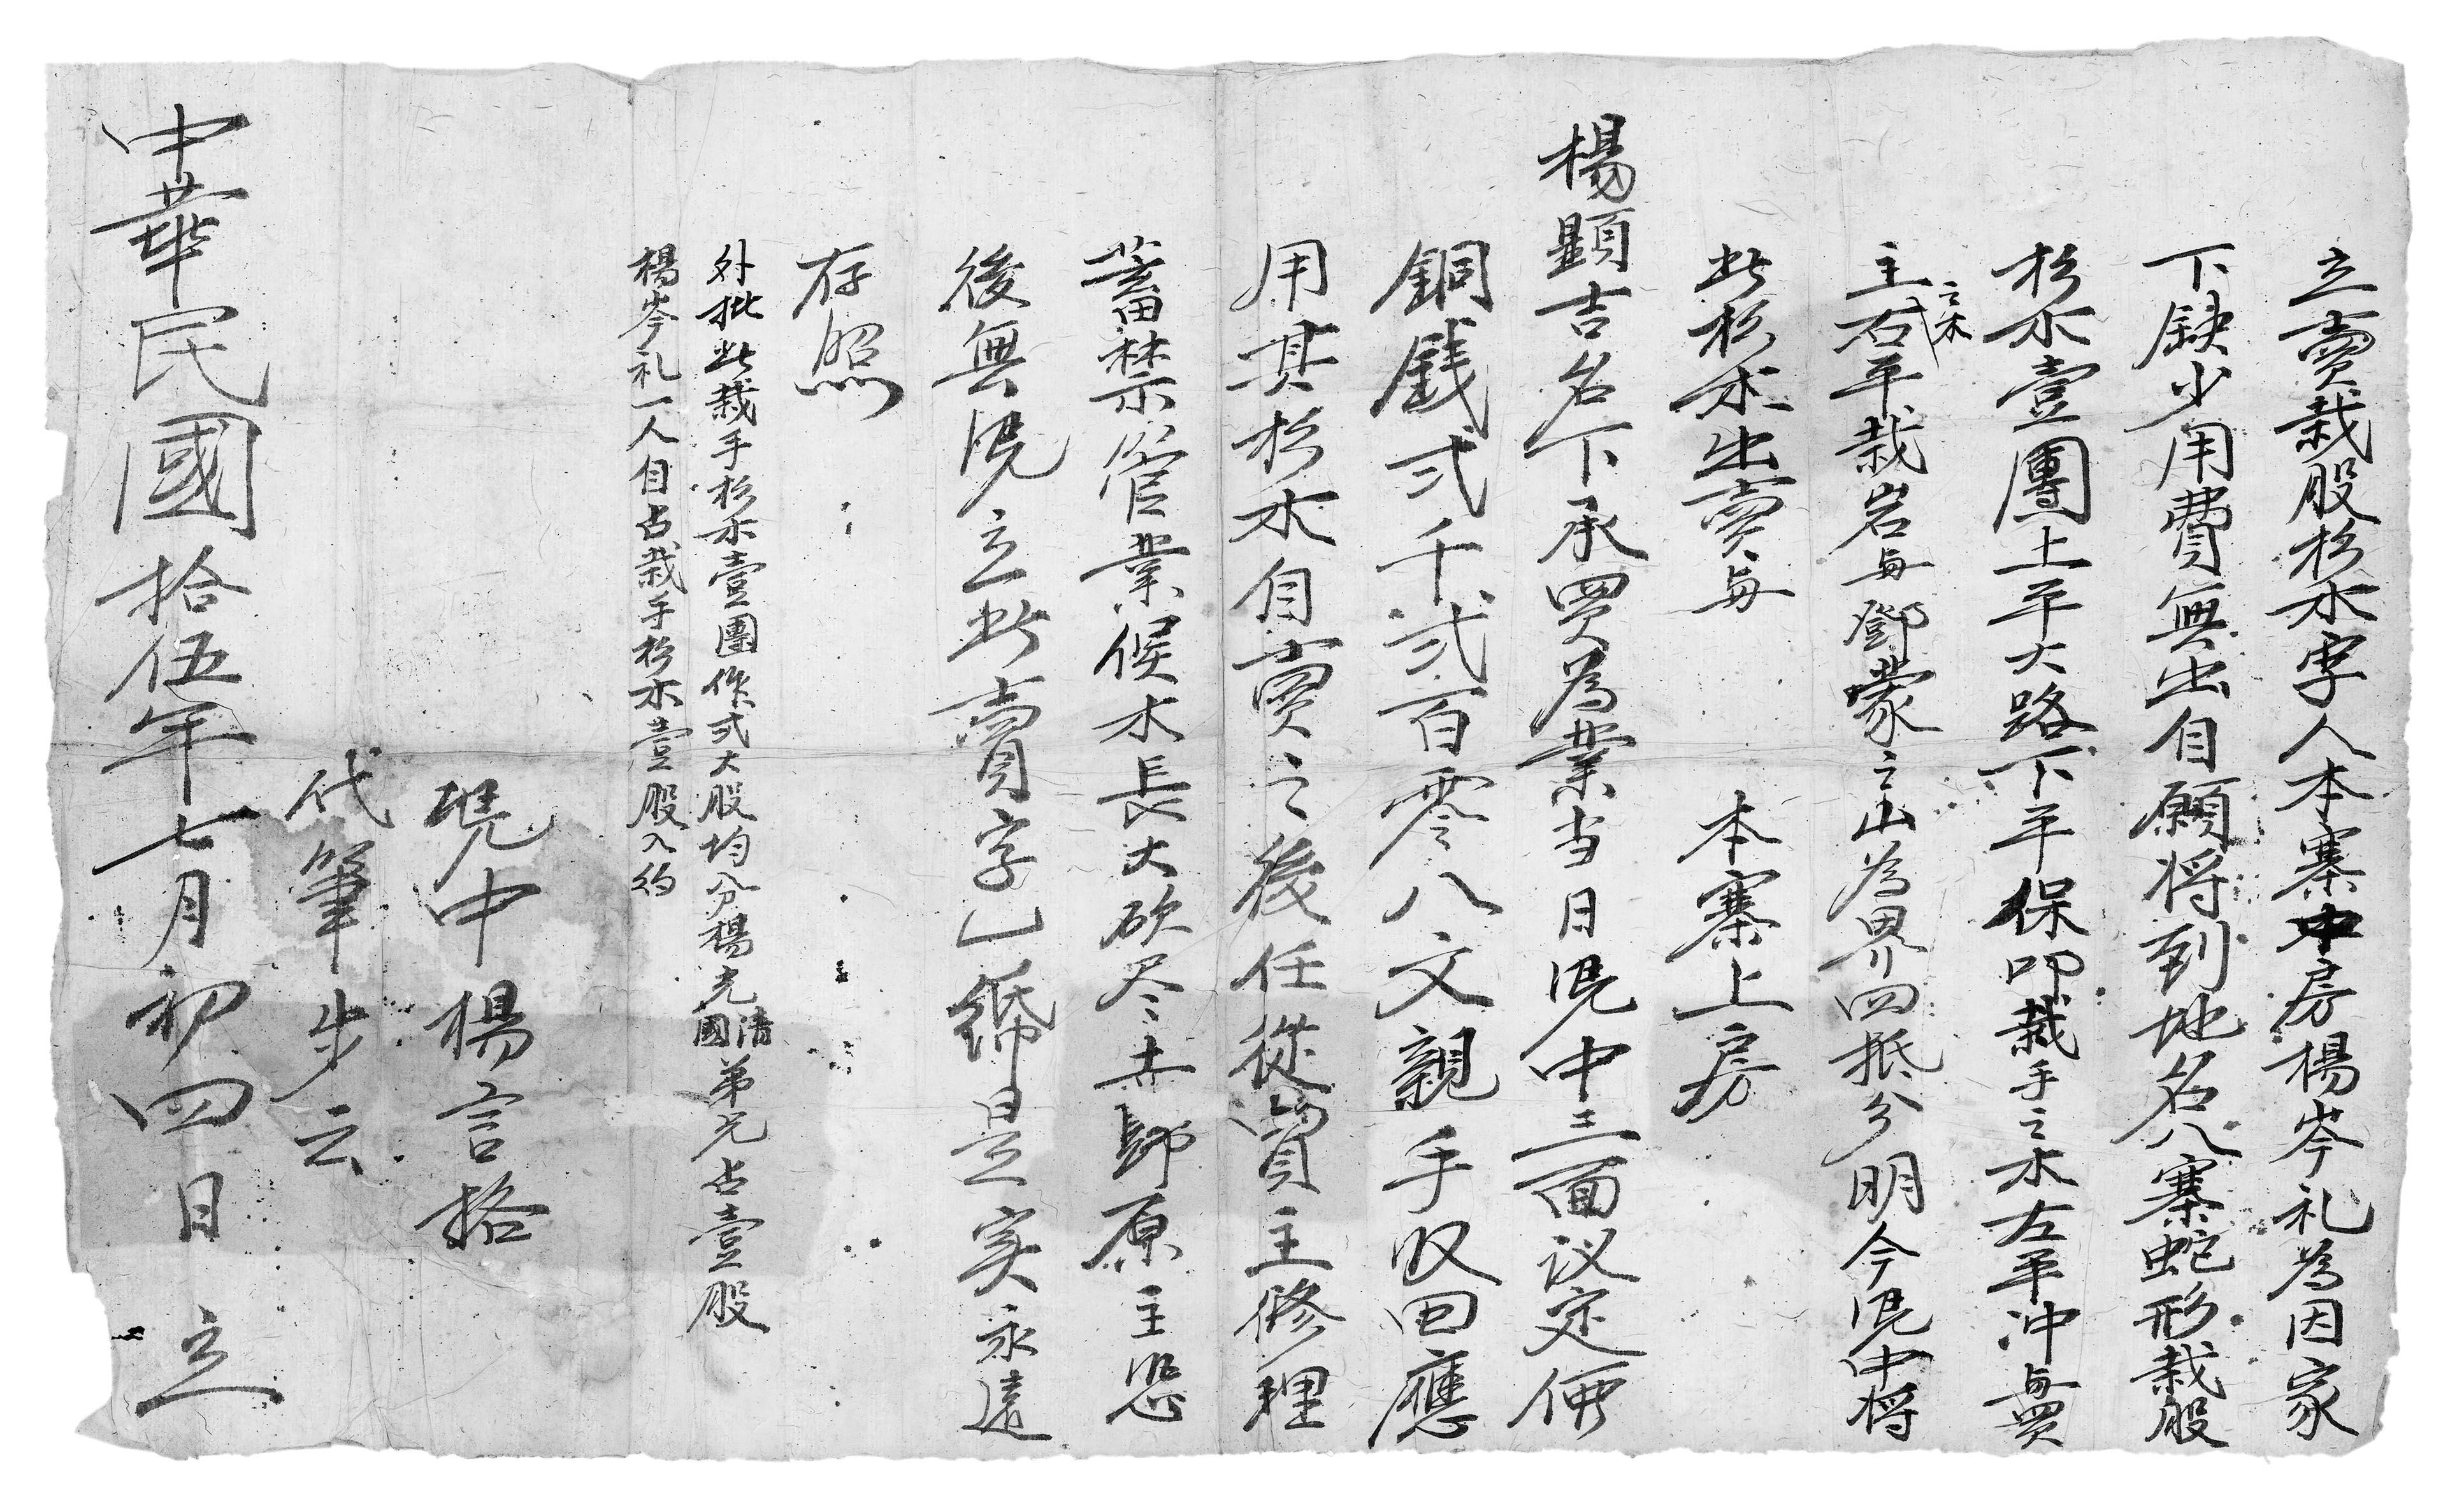 立賣栽股杉木字人本寨中房楊岑礼為因家
下缺少用費無出自願将到地名八寨蛇形栽股
杉木壹團上平大路下平保卯栽手之木左平冲與買
主之木右平栽岩與鄧蒙之山為界四抵分明今凭中将
此杉木出賣與 本寨上房
楊顕吉名下承買為業当日凭中三面议定價
銅錢弍千弍百零八文親手収回應
用其杉木自賣之後任從買主修理
蓄禁管業候木長大砍尽土歸原主恐
後無凭立此賣字乙𥿄是实永遠
存照
外批此栽手杉木壹團作弍大股均分楊光清國弟兄占壹股
楊岑礼一人自占栽手杉木壹股入約
凭中楊言格
代筆步云
中華民國拾伍年七月初四日 立